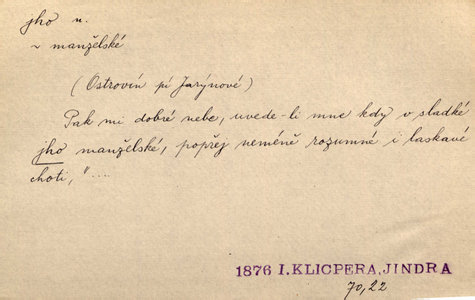 jho n.
~ manželské
(Ostrovín pí Jarýnové)
Pak mi dobré nebe, uvede-li mne kdy v sladké
jho manželské, popřej neméně rozumné i laskavé
choti,"....
1876 I.KLICPERA,JINDRA
70,22